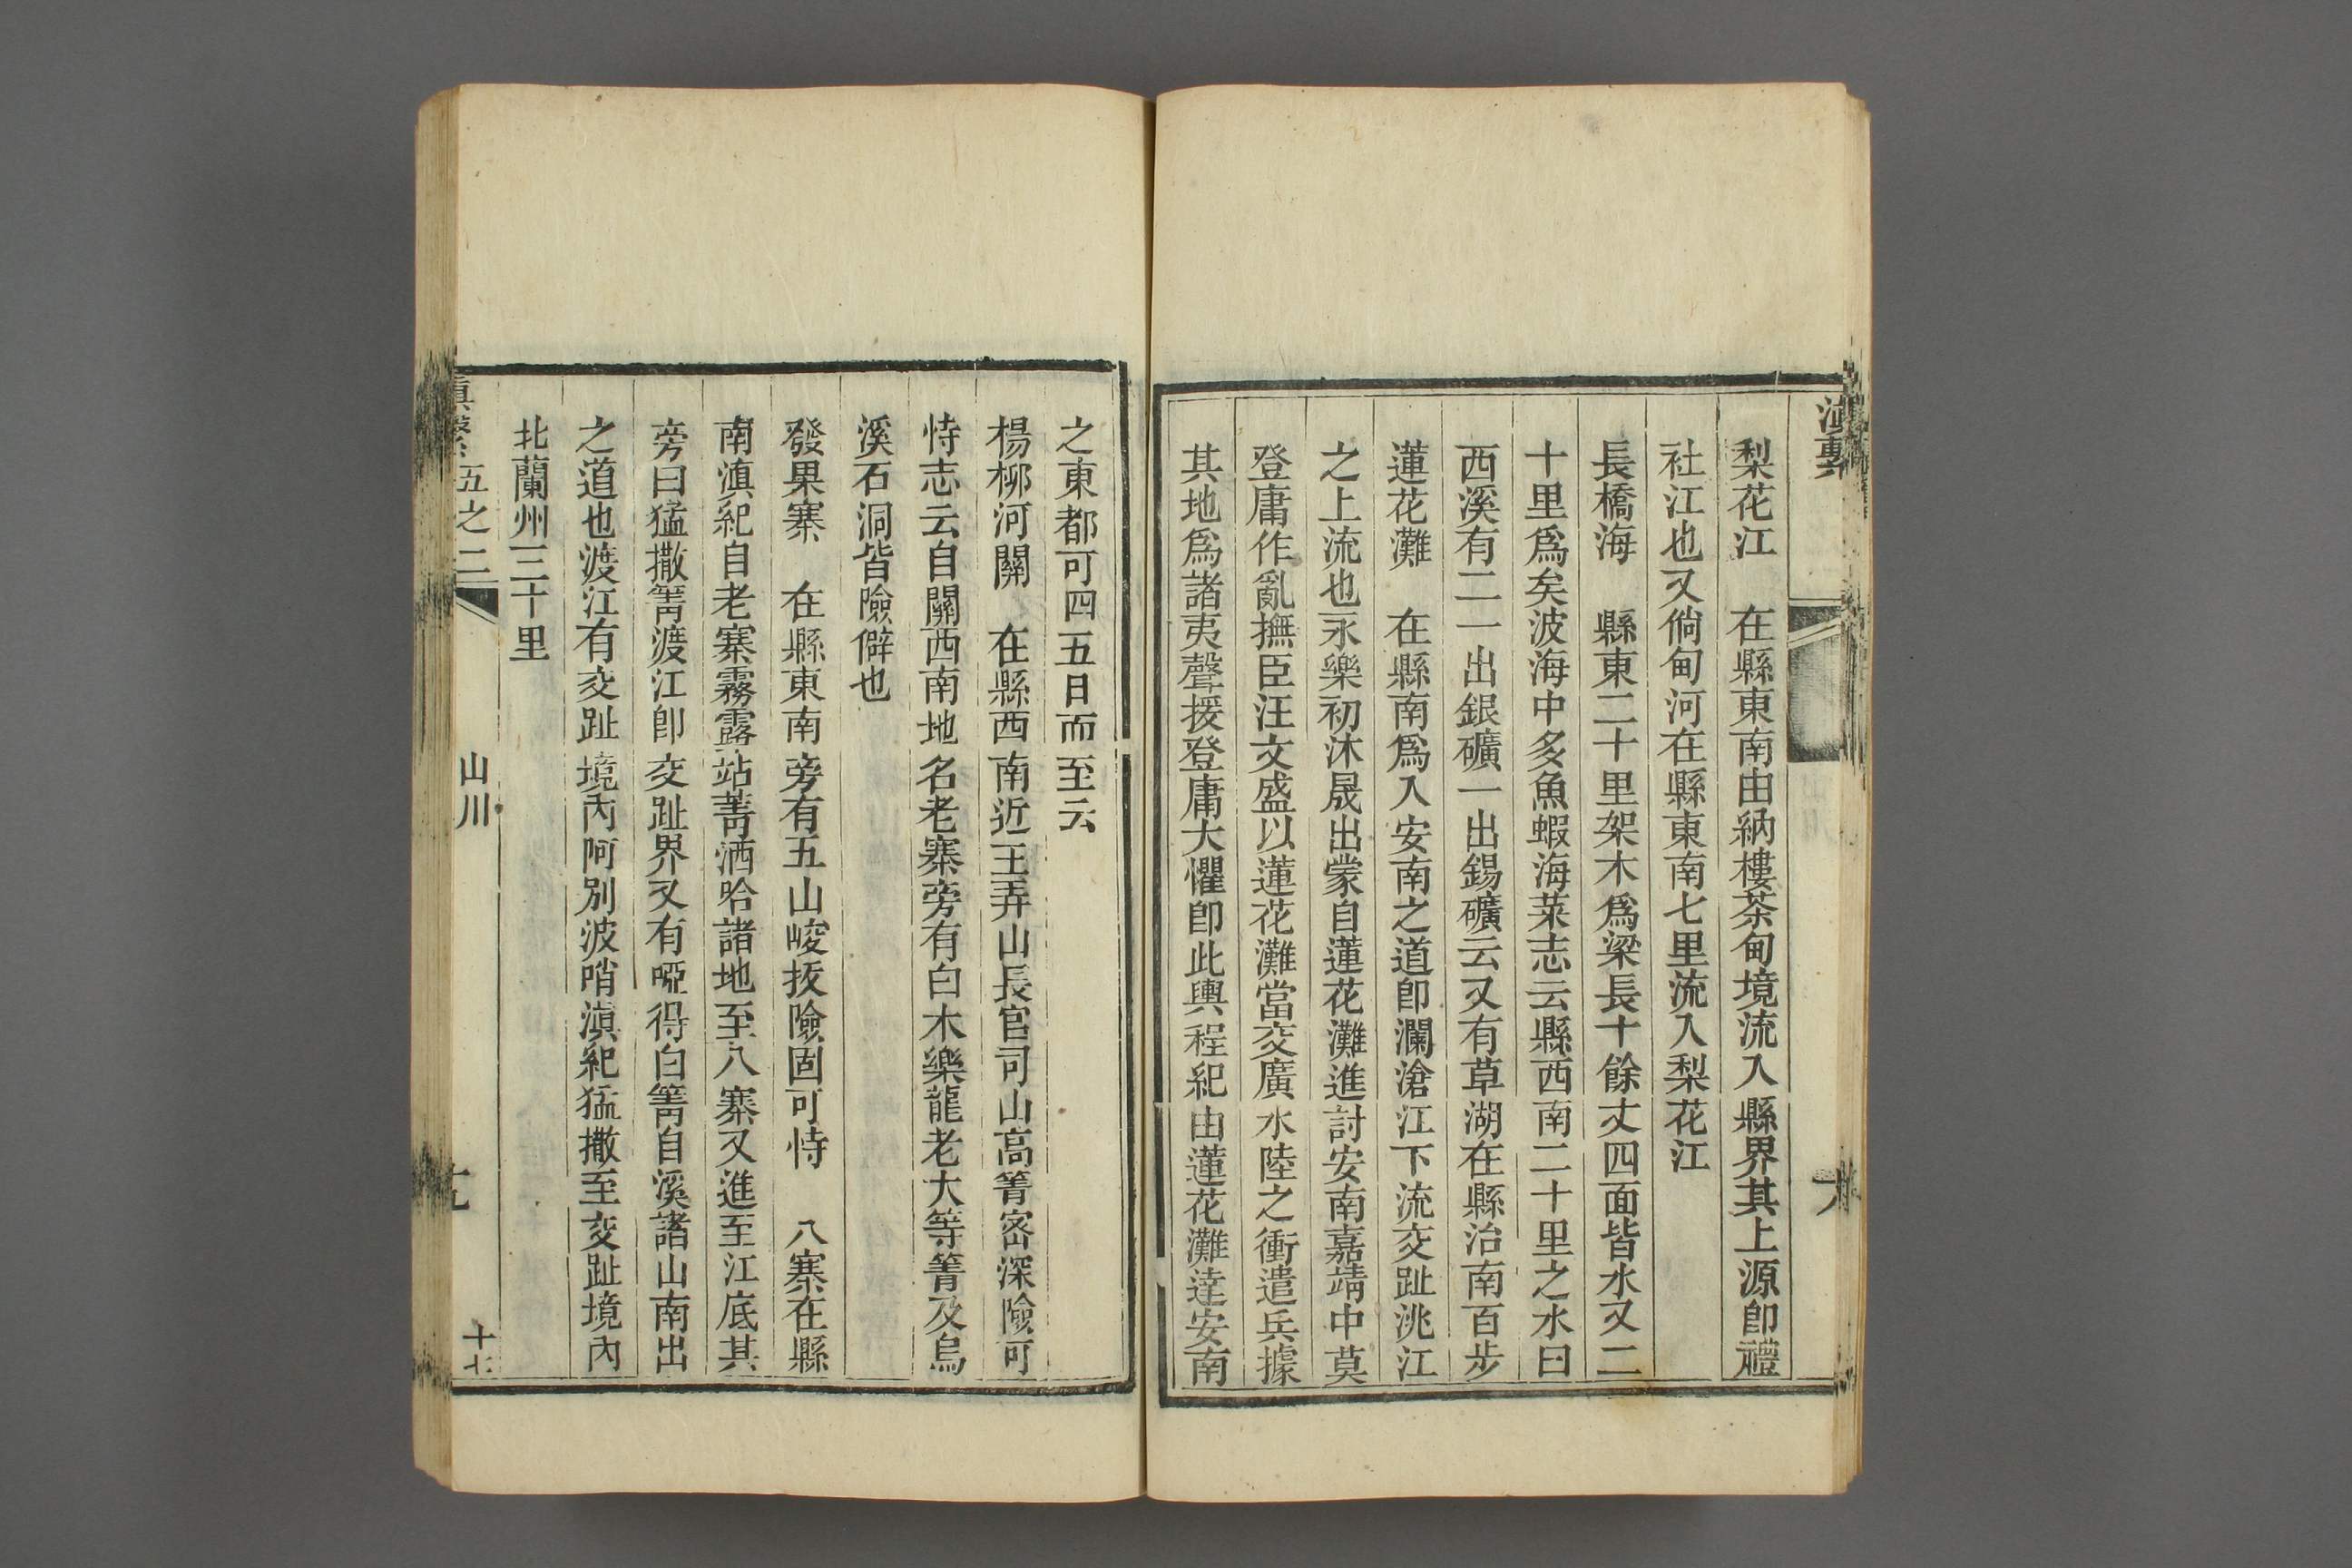 滇繫
梨花江　在縣東南由納樓茶甸境流入縣界其上源卽禮
社江也又倘甸河在縣東南七里流入梨花江
長橋海　縣東二十里架木爲梁長十餘丈四面皆水又二
十里爲矣波海中多魚蝦海菜志云縣西南二十里之水曰
西溪有二一出銀礦一出錫礦云又有草湖在縣治南百步
蓮花灘　在縣南爲入安南之道卽瀾滄江下流交趾洮江
之上流也永樂初沐晟出蒙自蓮花灘進討安南嘉靖中莫
登庸作亂撫臣汪文盛以蓮花灘當交廣水陸之衝遣兵據
其地爲諸夷聲援登庸大懼卽此輿程紀由蓮花灘達安南
之東都可四五日而至云
楊柳河關　在縣西南近王弄山長官司山高箐密深險可
恃志云自關西南地名老寨旁有白木樂龍老大等箐及烏
溪石洞皆險僻也
發果寨　在縣東南旁有五山峻拔險固可恃　八寨在縣
南滇紀自老寨霧露站菁洒哈諸地至八寨又進至江底其
旁曰猛撒箐渡江卽交趾界又有啞得白箐自溪諸山南出
之道也渡江有交趾境內阿別波哨滇紀猛撒至交趾境內
北蘭州三十里
滇繫 五之二　山川　十七